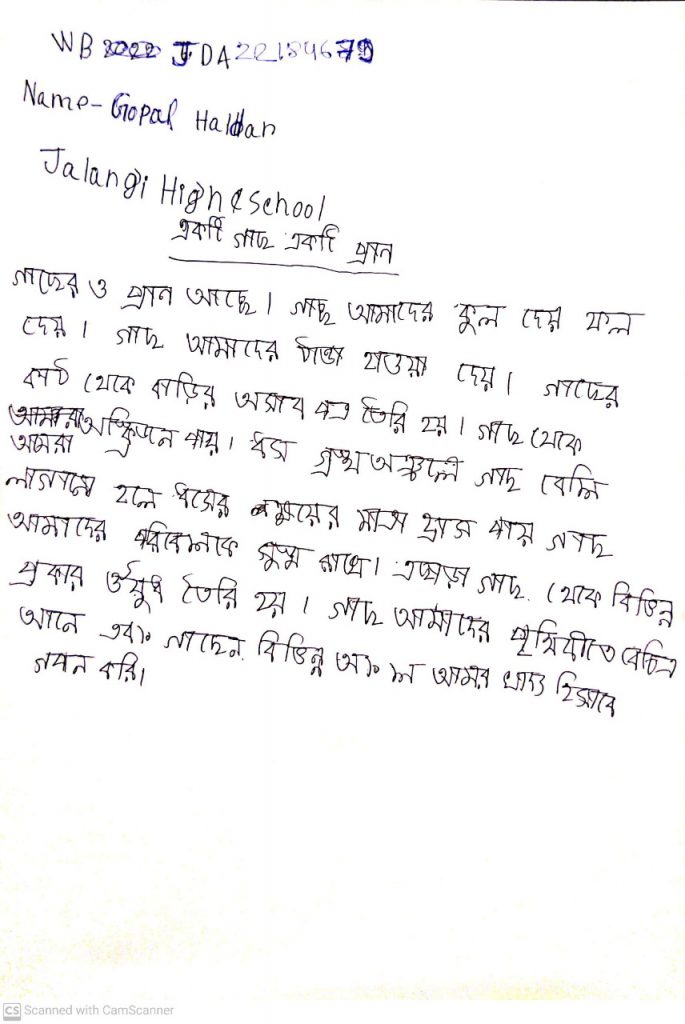 WB JDA
Name - Gopal Haldar
Jalangi High School
একটি গাছ একটি প্রান
গাছের ও প্রান আছে। গাছ আমাদের ফুল দেয় ফল
দেয়। গাছ আমাদের ঠান্ডা হাওয়া দেয়। গাছের
কাঠ থেকে বাড়ির আসবাব পত্র তৈরি হয়। গাছ থেকে
আমরা অক্সিজেন পায়। ধস গ্রস্থ অঞ্চলে গাছ বেশি
লাগানো হলে ধসের ক্ষয়ের মাত্রা হ্রাস পায় গাছ
আমাদের পরিবেশকে সুস্থ রাখে। এছাড়া গাছ থেকে বিভিন্ন
প্রকার ঔষুধ তৈরি হয়। গাছ আমাদের পৃথিবীতে বৈচিত্র
আনে এবং গাছের বিভিন্ন অংশ আমরা খাদ্য হিসাবে
করি।
CS Scanned with CamScanner